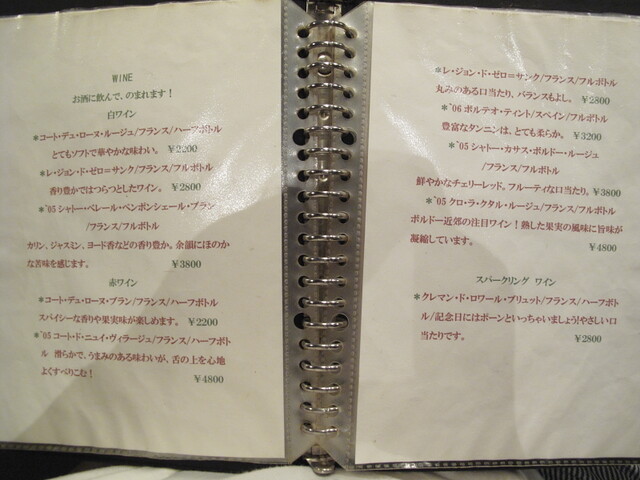 WINE
お酒に飲んで、のまれます！
白ワイン
＊コート・デュ・ローヌ・ルージュ/フランス/ハーフボトル
とてもソフトで華やかな味わい。 ￥2200
＊レ・ジョン・ド・ゼロ＝サンク/フランス/フルボトル
香り豊かではつらつとしたワイン。 ￥2800
＊'05 シャトー・ペレール・ペンポンシェール・ブラン
/フランス/フルボトル
カリン、ジャスミン、ヨード香などの香り豊か。余韻にほのか
な苦味を感じます。 ￥3800
赤ワイン
＊コート・デュ・ローヌ・ブラン/フランス/ハーフボトル
スパイシーな香りや果実味が楽しめます。 ￥2200
＊'05 コート・ド・ニュイ・ヴィラージュ/フランス/ハーフボト
ル 滑らかで、うまみのある味わいが、舌の上を心地
よくすべりこむ！
￥4800
＊レ・ジョン・ド・ゼロ＝サンク/フランス/フルボトル
丸みのある口当たり、バランスもよし。 ￥2800
＊'06 ポルテオ・ティント/スペイン/フルボトル
豊富なタンニンは、とても柔らか。 ￥3200
＊'05 シャトー・カサス・ボルドー・ルージュ
/フランス/フルボトル
鮮やかなチェリーレッド。フルーティな口当たり。￥3800
＊'05 クロ・ラ・クタル・ルージュ/フランス/フルボトル
ボルドー近郊の注目ワイン！熟した果実の風味に旨味が
凝縮しています。
￥4800
スパークリング ワイン
＊クレマン・ド・ロワール・ブリュット/フランス/ハーフボト
ル/記念日にはポーンといっちゃいましょう!やさしい口
当たりです。 ￥2800